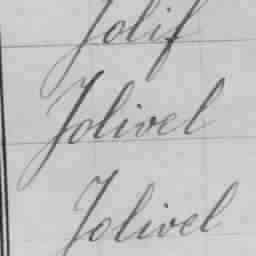 Jolif
Jolivel
Jolivel